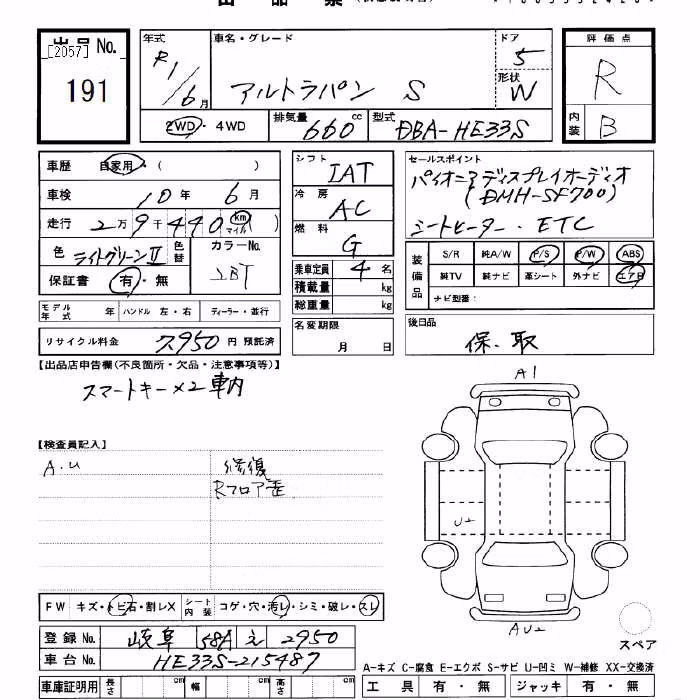 出品票
出品No.
[2057]
191
年式
R1/6月
車名・グレード
アルトラパン S
ドア
5
形状
W
評価点
R
内装
B
2WD・4WD
排気量
660 cc
型式
DBA-HE33S
車歴 自家用・( )
車検 10年 6月
走行 2万9千440 km マイル
色 ライトグリーンII 色替
カラーNo.
保証書 有・無
シフト
IAT
冷房
AC
燃料
G
乗車定員 4名
積載量 kg
総重量 kg
名変期限
月 日
セールスポイント
パイオニアディスプレイオーディオ
(DMH-SF700)
シートヒーター・ETC
装備品 S/R 純A/W P/S P/W ABS
純TV 純ナビ 革シート 外ナビ エアB
ナビ型番:
モデル年式 年 ハンドル 左・右 ディーラー・並行
リサイクル料金 7950円 預託済
後日品
保・取
【出品店申告欄(不良箇所・欠品・注意事項等)】
スマートキー×2 車内
【検査員記入】
A.U
修復
Rフロア歪
A1
U2
AU2
スペア
FW キズ・トビ石・割レX シート内装 コゲ・穴・汚レ・シミ・破レ・スレ
登録No. 岐阜 58A え 2950
車台No. HE33S-215487
車庫証明用 長さ cm 幅 cm 高さ cm
A-キズ C-腐食 E-エクボ S-サビ U-凹ミ W-補修 XX-交換済
工具 有・無 ジャッキ 有・無